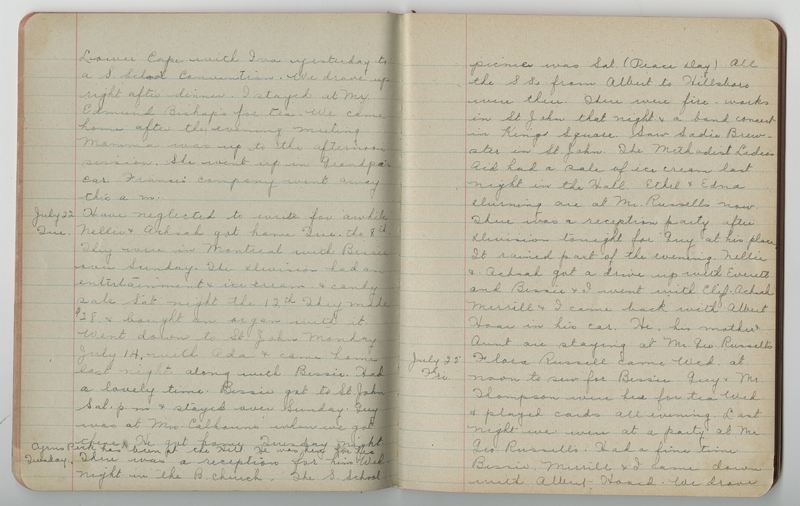 Lower Cape with Iva yesterday to
a S. School Convention. We drove up
right after dinner. I stayed at Mr.
Edmund Bishop's for tea. We came
home after the evening meeting
Mamma was up to the afternoon
session. She went up in Grandpa's
car. Francis' company went away
this a.m.
July 22 Have neglected to write for awhile
Tue. Nellie & Achsah got home Tues. the 8th
They were in Montreal with Bessie
over Sunday. The division had an
entertainment & ice cream & candy
sale Sat night the 12th They made
$28. & bought an organ with it
Went down to St John Monday
July 14, with Ada & came home
last night along with Bessie. Had
a lovely time. Bessie got to St. John
Sat. p.m & stayed over Sunday. Guy
was at Mrs. Calhoun's when we got
there. He got home Tuesday night.
has been at the Hill. He was here for tea
Sunday. There was a reception for him Wed.
night in the B. Church. The S. School
picnic was Sat. (Peace Day) All
the S Ss. from Albert to Hillsboro
were there. There were fire-works
in St John that night & a band concert
in King Square. Saw Sadie Brew-
ster in St John. The Methodist Ladies
Aid had a sale of ice cream last
night in the Hall. Ethel & Edna
are at Mr. Russells now.
There was a reception party after
division tonight for Guy at his place
It rained part of the evening. Nellie
& Achsah got a drive up with Everett
and Bessie & I went with Clef. Achsah
Merrill & I came back with Albert
Hoar in his car. He, his mother &
Aunt are staying at Mr. Geo Russells
July 25 Flora Russell came Wed. at
Fri. noon to sew for Bessie. Guy & Mr.
Thompson were here for tea Wed
& played cards all evening. Last
night we were at a party at Mr
Geo Russells. Had a fine time
Bessie, Merrill & I came down
with Albert Hoar. We drove